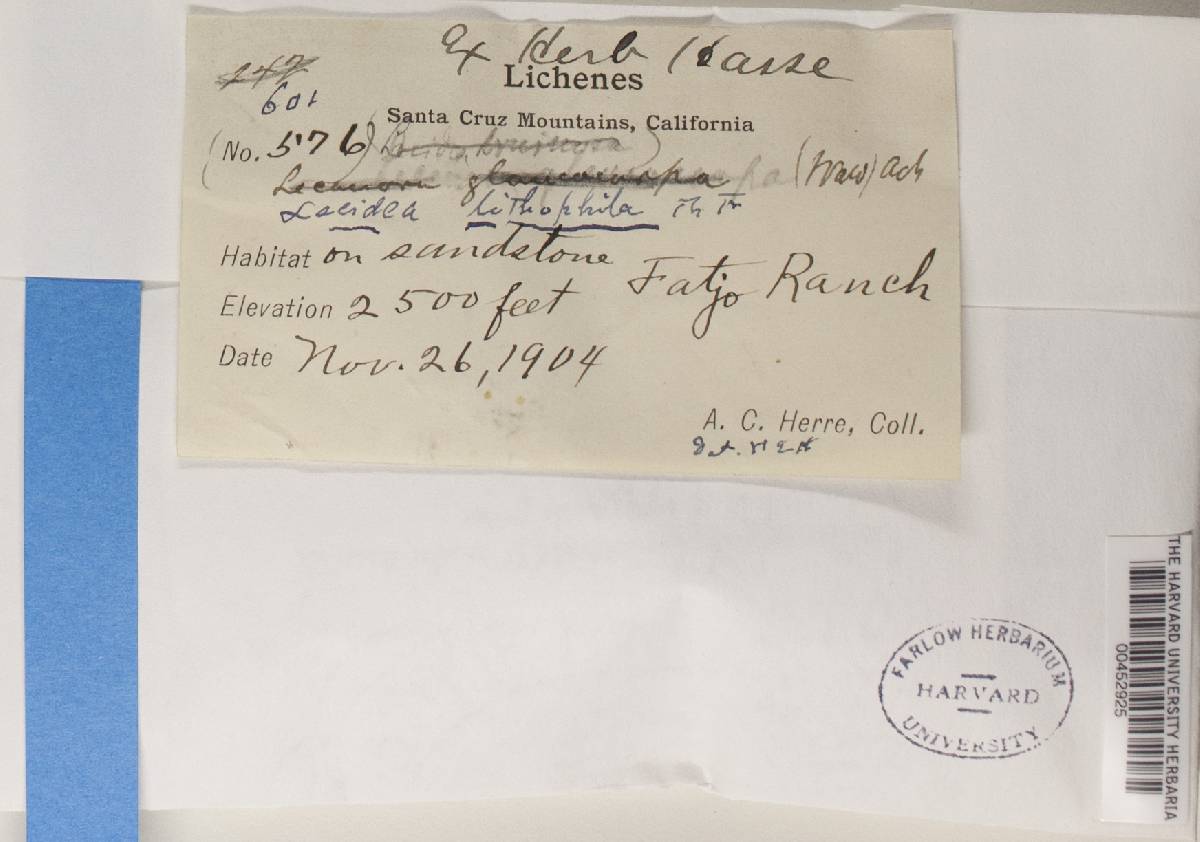 Ex Herb Hasse
Lichenes
147
601
Santa Cruz Mountains, California
(No. 576)
Lecanora glaucocarpa (Wahl) Ach
Lecidea lithophila Th Fr
Habitat on sandstone
Fatjo Ranch
Elevation 2500 feet
Date Nov. 26, 1904
A. C. Herre, Coll.
Det. H E H
FARLOW HERBARIUM
HARVARD
UNIVERSITY
THE HARVARD UNIVERSITY HERBARIA
00452925